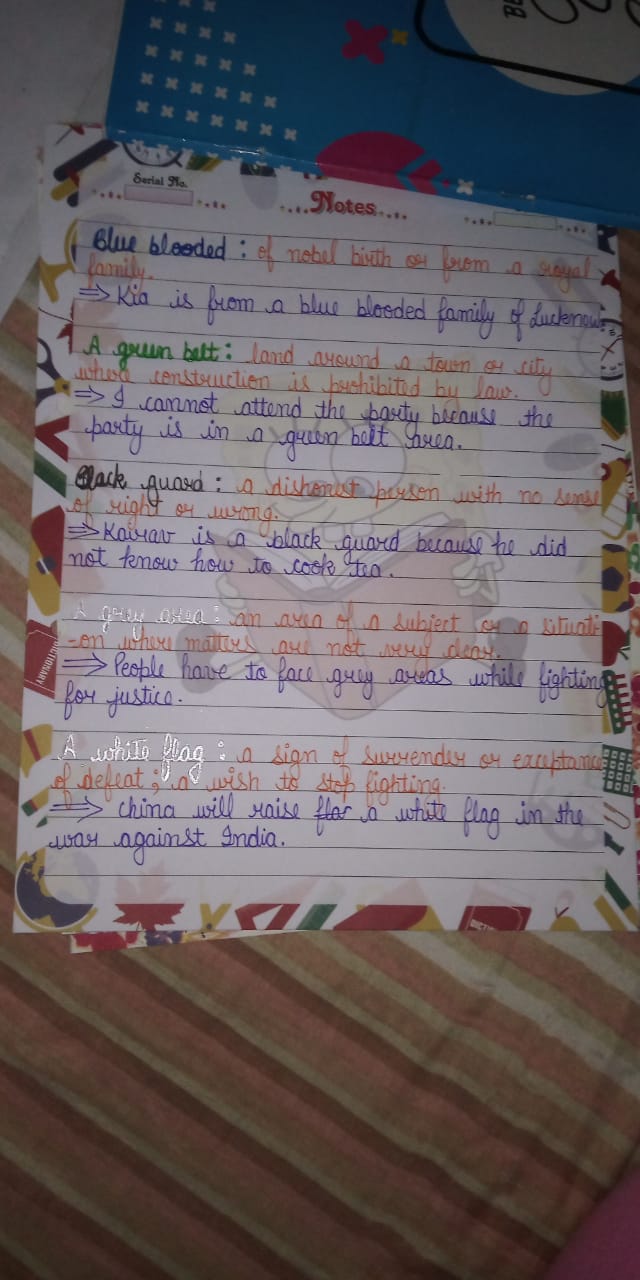 BE
Serial No.
Notes
Blue blooded : of nobel birth or from a royal
family.
⇒ Kia is from a blue blooded family of Lucknow.
A green belt : land around a town or city
where construction is prohibited by law.
⇒ I cannot attend the party because the
party is in a green belt area.
Black guard : a dishonest person with no sense
of right or wrong.
⇒ Kairav is a black guard because he did
not know how to cook tea.
A grey area : an area of a subject or a situati
-on where matters are not very clear.
⇒ People have to face grey areas while fighting
for justice.
A white flag : a sign of surrender or exceptance
of defeat ; a wish to stop fighting.
⇒ China will raise flar a white flag in the
war against India.
DICTIONARY